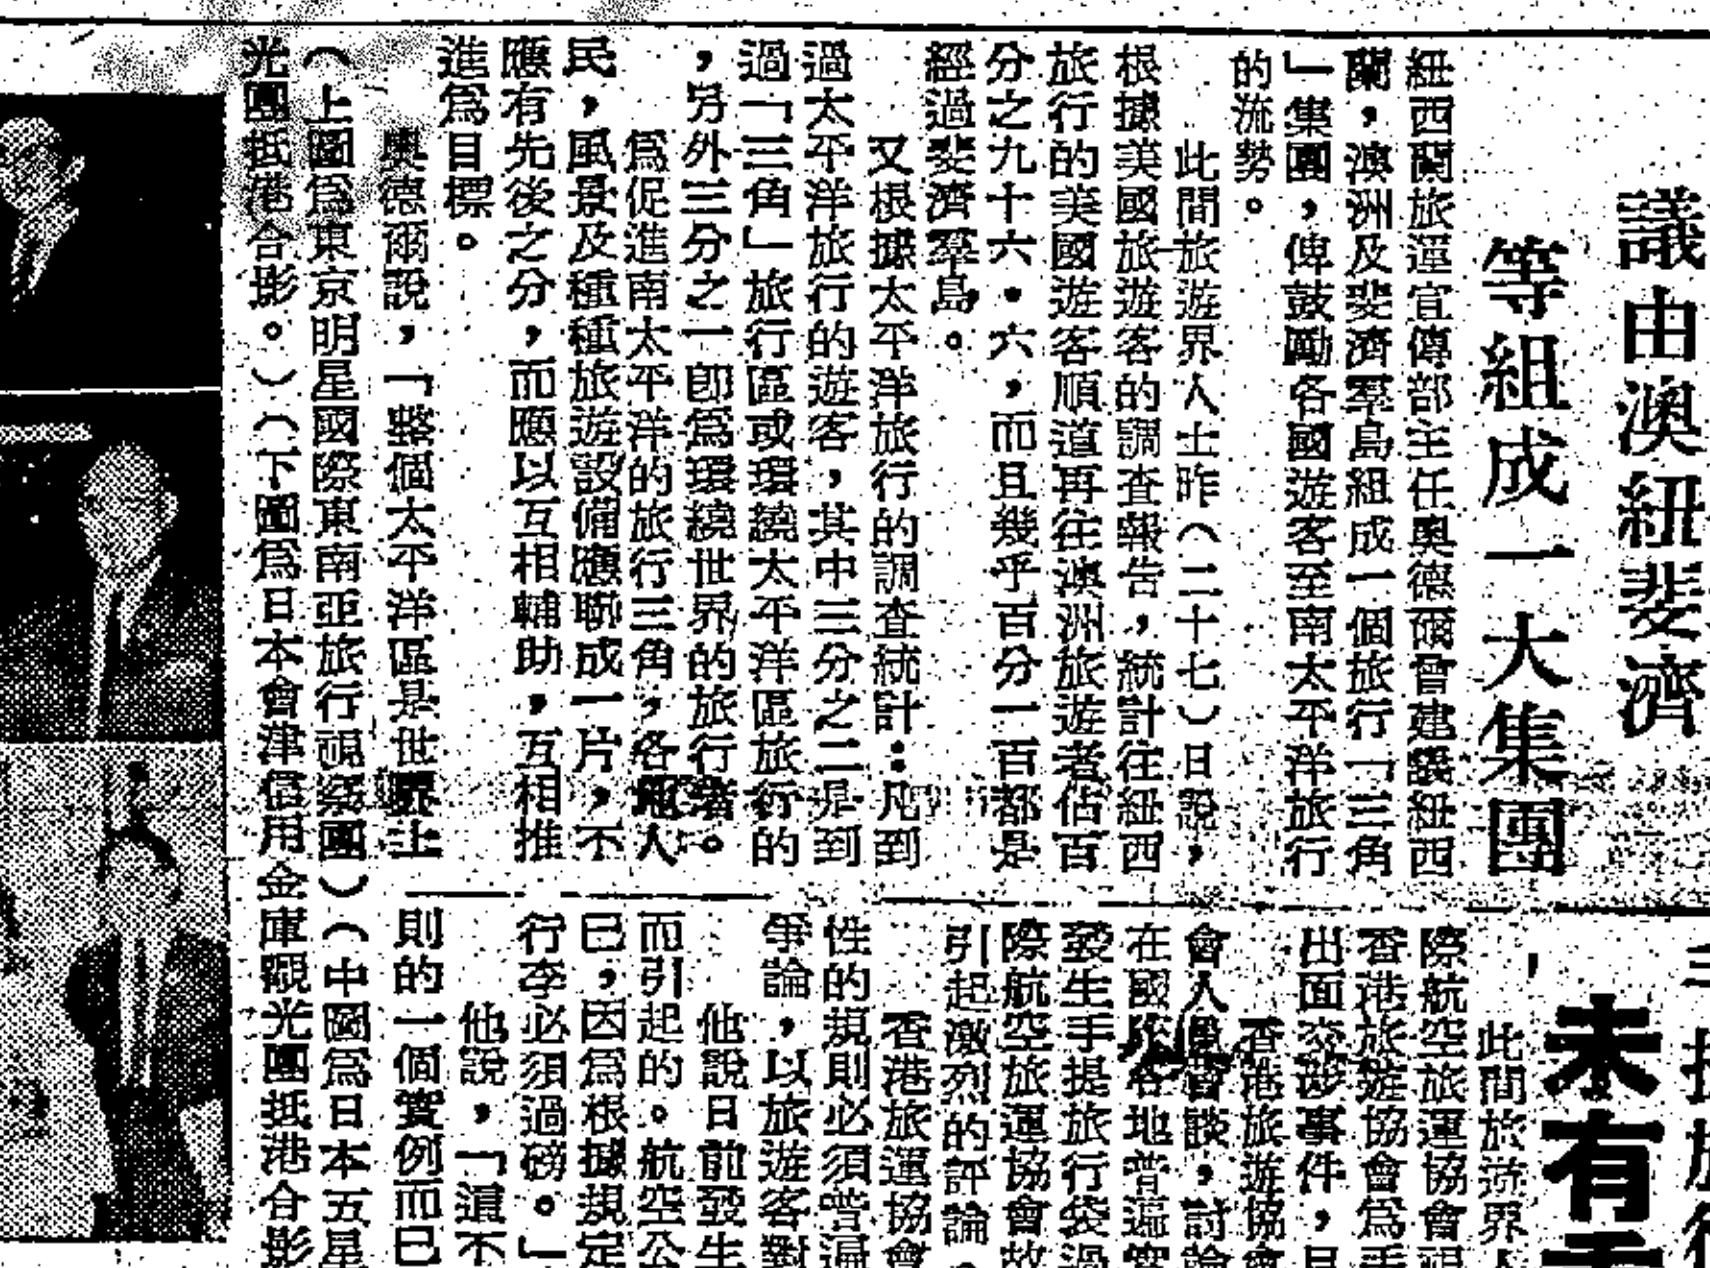 議由澳紐斐濟
等組成一大集團
紐西蘭旅運宣傳部主任奧德爾曾建議紐西
蘭，澳洲及斐濟羣島組成一個旅行「三角
」集團，俾鼓勵各國遊客至南太平洋旅行
的流勢。
此間旅遊界人士昨（二十七）日說，
根據美國旅遊客的調查報告，統計往紐西
旅行的美國遊客順道再往澳洲旅遊者佔百
分之九十六・六，而且幾乎百分一百都是
經過斐濟羣島。
又根據太平洋旅行的調查統計：凡到
過太平洋旅行的遊客，其中三分之二是到
過「三角」旅行區或環繞太平洋區旅行的
，另外三分之一卽爲環繞世界的旅行者。
爲促進南太平洋的旅行三角，各地人
民，風景及種種旅遊設備應聯成一片，不
應有先後之分，而應以互相輔助，互相推
進爲目標。
奧德爾說，「整個太平洋區是世界上
（上圖爲東京明星國際東南亞旅行視察團）（中圖爲日本五星
光團抵港合影。）（下圖爲日本會津信用金庫觀光團抵港合影
手提旅行
未有
此間旅遊界人
際航空旅運協會視
香港旅遊協會爲手
出面交涉事件，日
香港旅遊協會
會人員會談，討論
在國際各地普遍實
發生手提旅行袋過
際航空旅運協會故
引起激烈的評論。
香港旅運協會
性的規則必須普遍
爭論，以旅遊客對
他說日前發生
而引起的。航空公
已，因爲根據規定
行李必須過磅。」
他說，「這不
則的一個實例而已